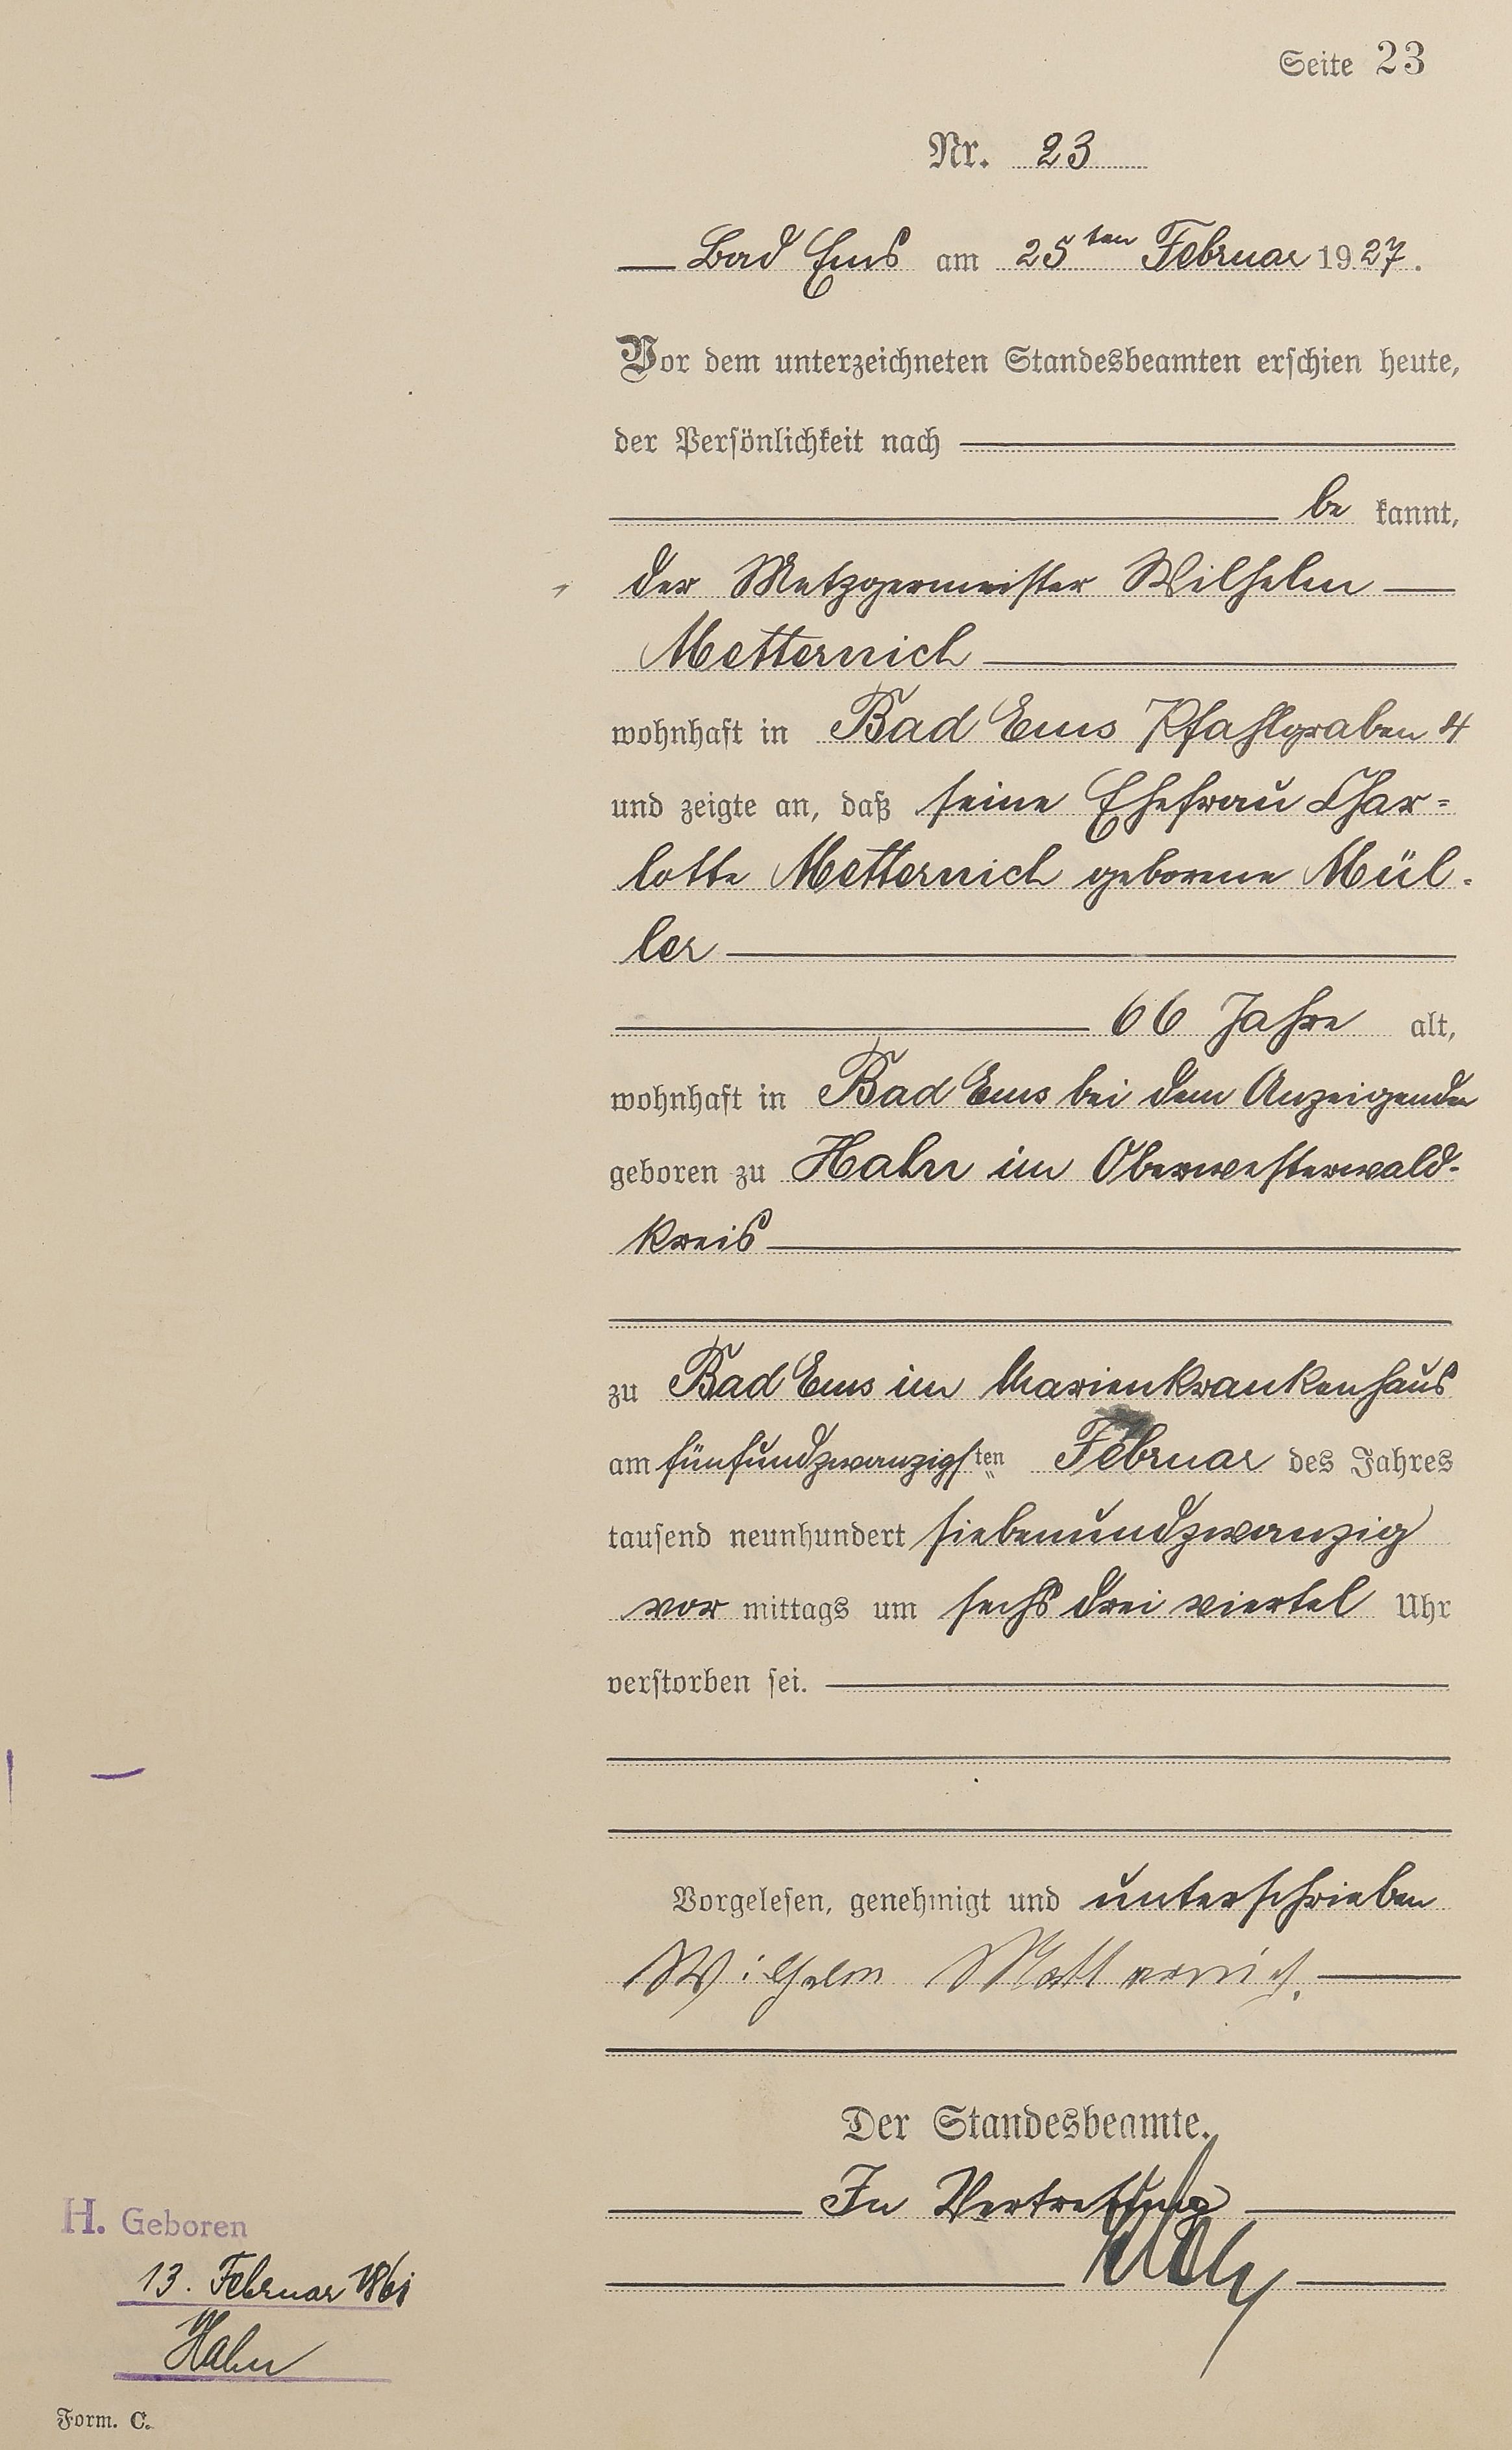 Seite 23
Nr. 23
Bad Ems am 25ten Februar 1927.
Vor dem unterzeichneten Standesbeamten erschien heute,
der Persönlichkeit nach
be kannt,
der Metzgermeister Wilhelm
Metternich
wohnhaft in Bad Ems Pfahlgraben 4
und zeigte an, daß seine Ehefrau Char-
lotte Metternich geborene Mül-
ler
66 Jahre alt,
wohnhaft in Bad Ems bei dem Anzeigenden
geboren zu Hahn im Oberwesterwald-
kreis
zu Bad Ems im Marienkrankenhaus
am fünfundzwanzigsten Februar des Jahres
tausend neunhundert siebenundzwanzig
vor mittags um sechs drei viertel Uhr
verstorben sei.
Vorgelesen, genehmigt und unterschrieben
Wilhelm Metternich.
Der Standesbeamte.
In Vertretung
H. Geboren
13. Februar 1861
Hahn
Form. C.